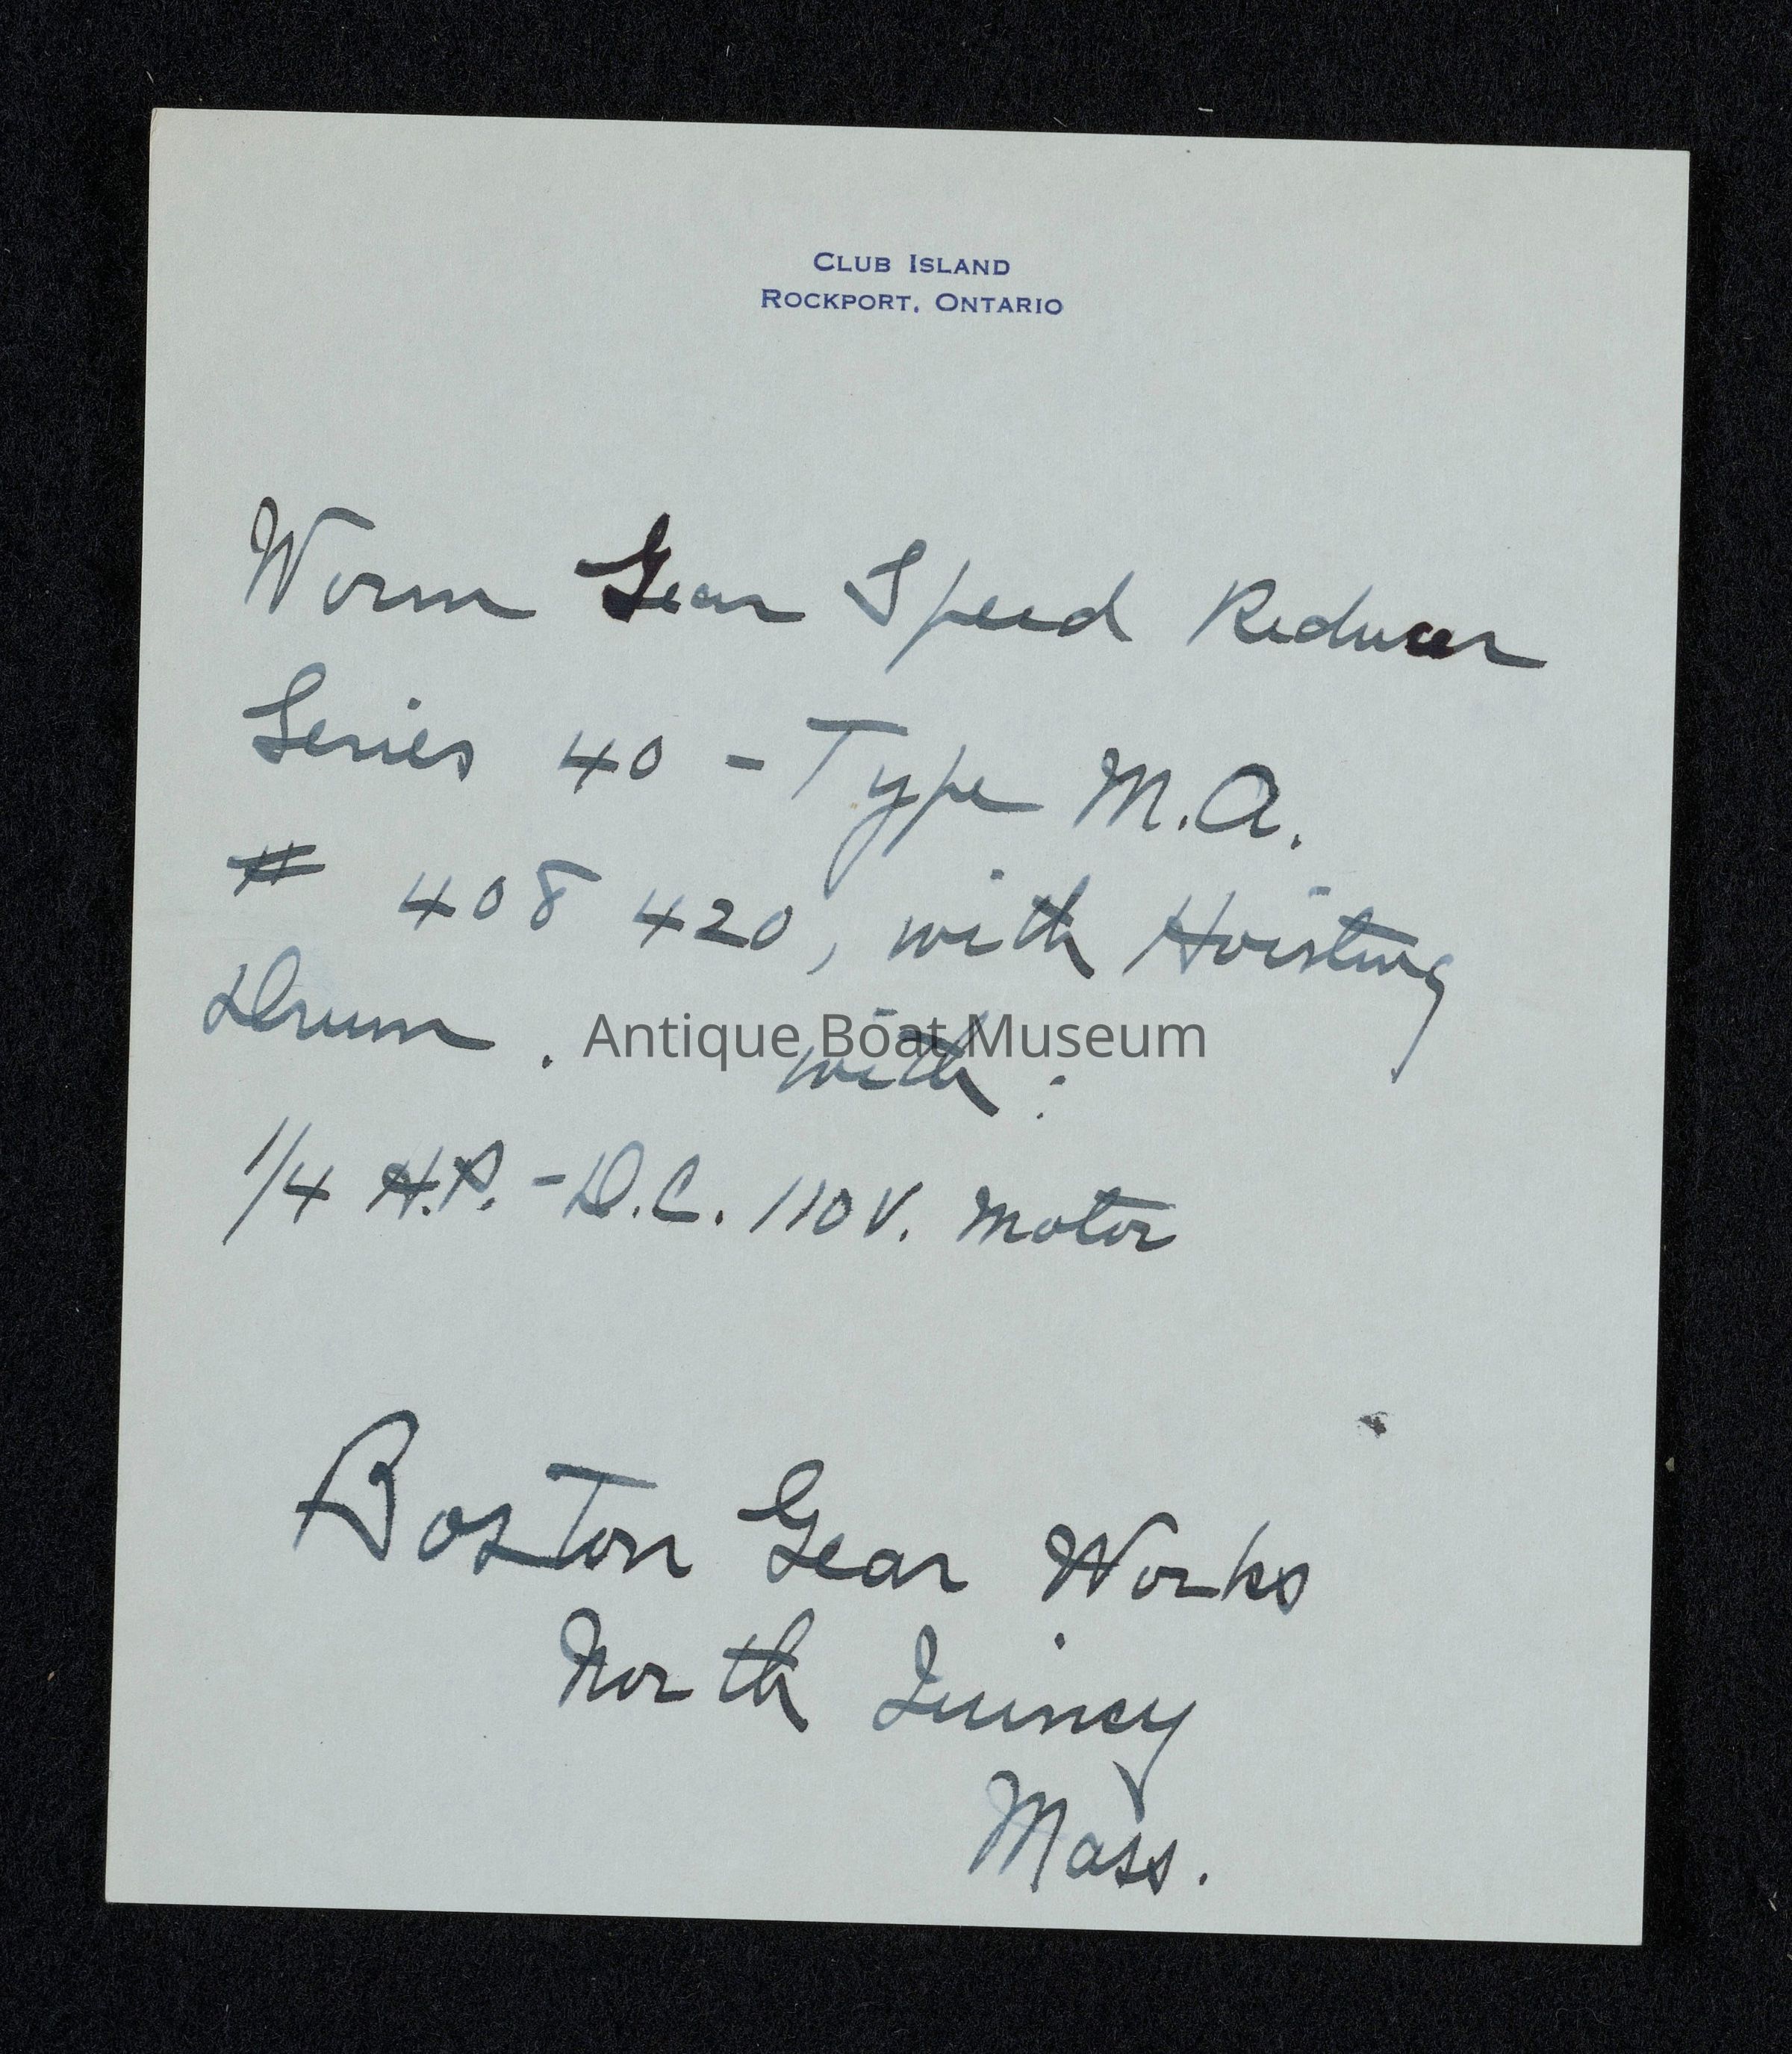 CLUB ISLAND
ROCKPORT, ONTARIO
Worm Gear Speed Reducer
Series 40 - Type M.A.
# 408 420, with Hoisting
Drum. with:
Antique Boat Museum
1/4 H.P. - D.C. 110 V. Motor
Boston Gear Works
North Quincy
Mass.